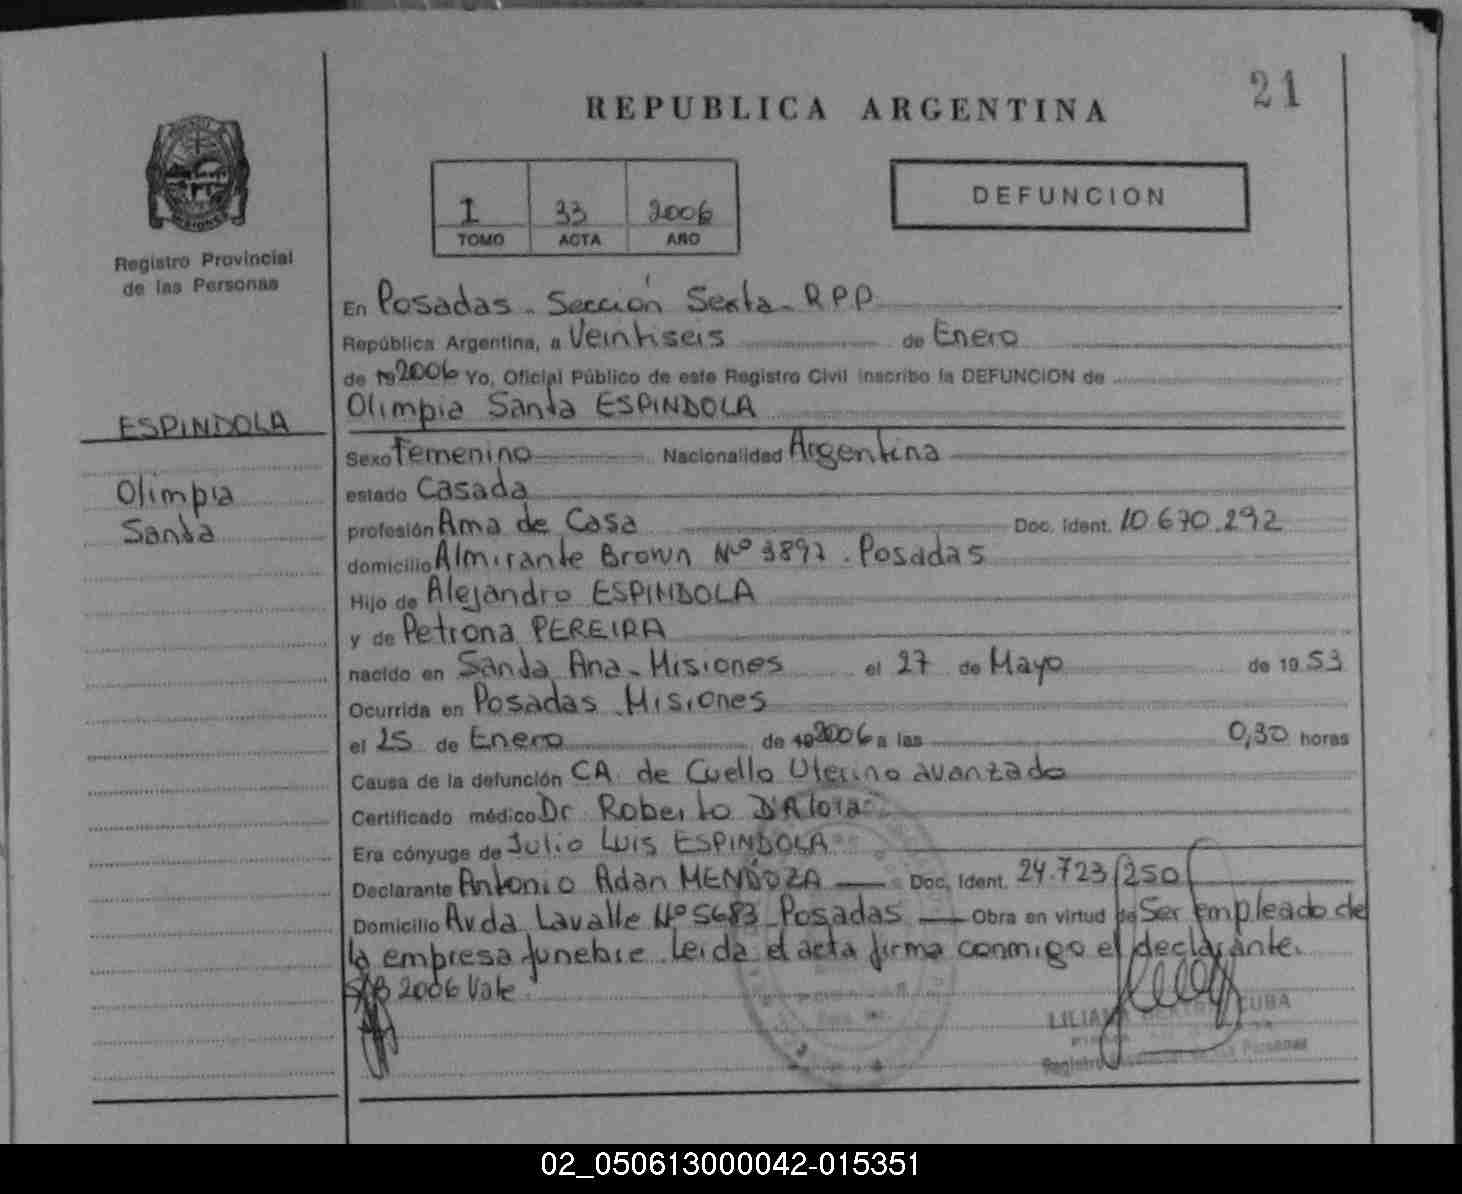 21
REPUBLICA ARGENTINA
DEFUNCION
I 33 2006
TOMO ACTA AÑO
Registro Provincial
de las Personas
En Posadas - Sección Sexta - R P P
República Argentina, a Veintiseis de Enero
de 19 2006 Yo, Oficial Público de este Registro Civil inscribo la DEFUNCION de
Olimpia Santa ESPINDOLA
ESPINDOLA
Olimpia
Santa
Sexo Femenino Nacionalidad Argentina
estado Casada
profesión Ama de Casa Doc. Ident. 10.670.292
domicilio Almirante Brown Nº Posadas
Hijo de Alejandro ESPINDOLA
y de Petrona PEREIRA
nacido en Santa Ana - Misiones el 27 de Mayo de 19 53
Ocurrida en Posadas - Misiones
el 25 de Enero de 19 2006 a las 0,30 horas
Causa de la defunción CA. de Cuello Uterino avanzado
Certificado médico Dr. Roberto
Era cónyuge de Julio Luis ESPINDOLA
Declarante Antonio Adan MENDOZA Doc. Ident. 24.723.250
Domicilio Avda Lavalle Nº 5683 - Posadas Obra en virtud de Ser empleado de
la empresa funebre. Leida el acta firma conmigo el declarante.
S/B 2006 Vale
LILIANA CUBA
Registro Personas
02_050613000042-015351